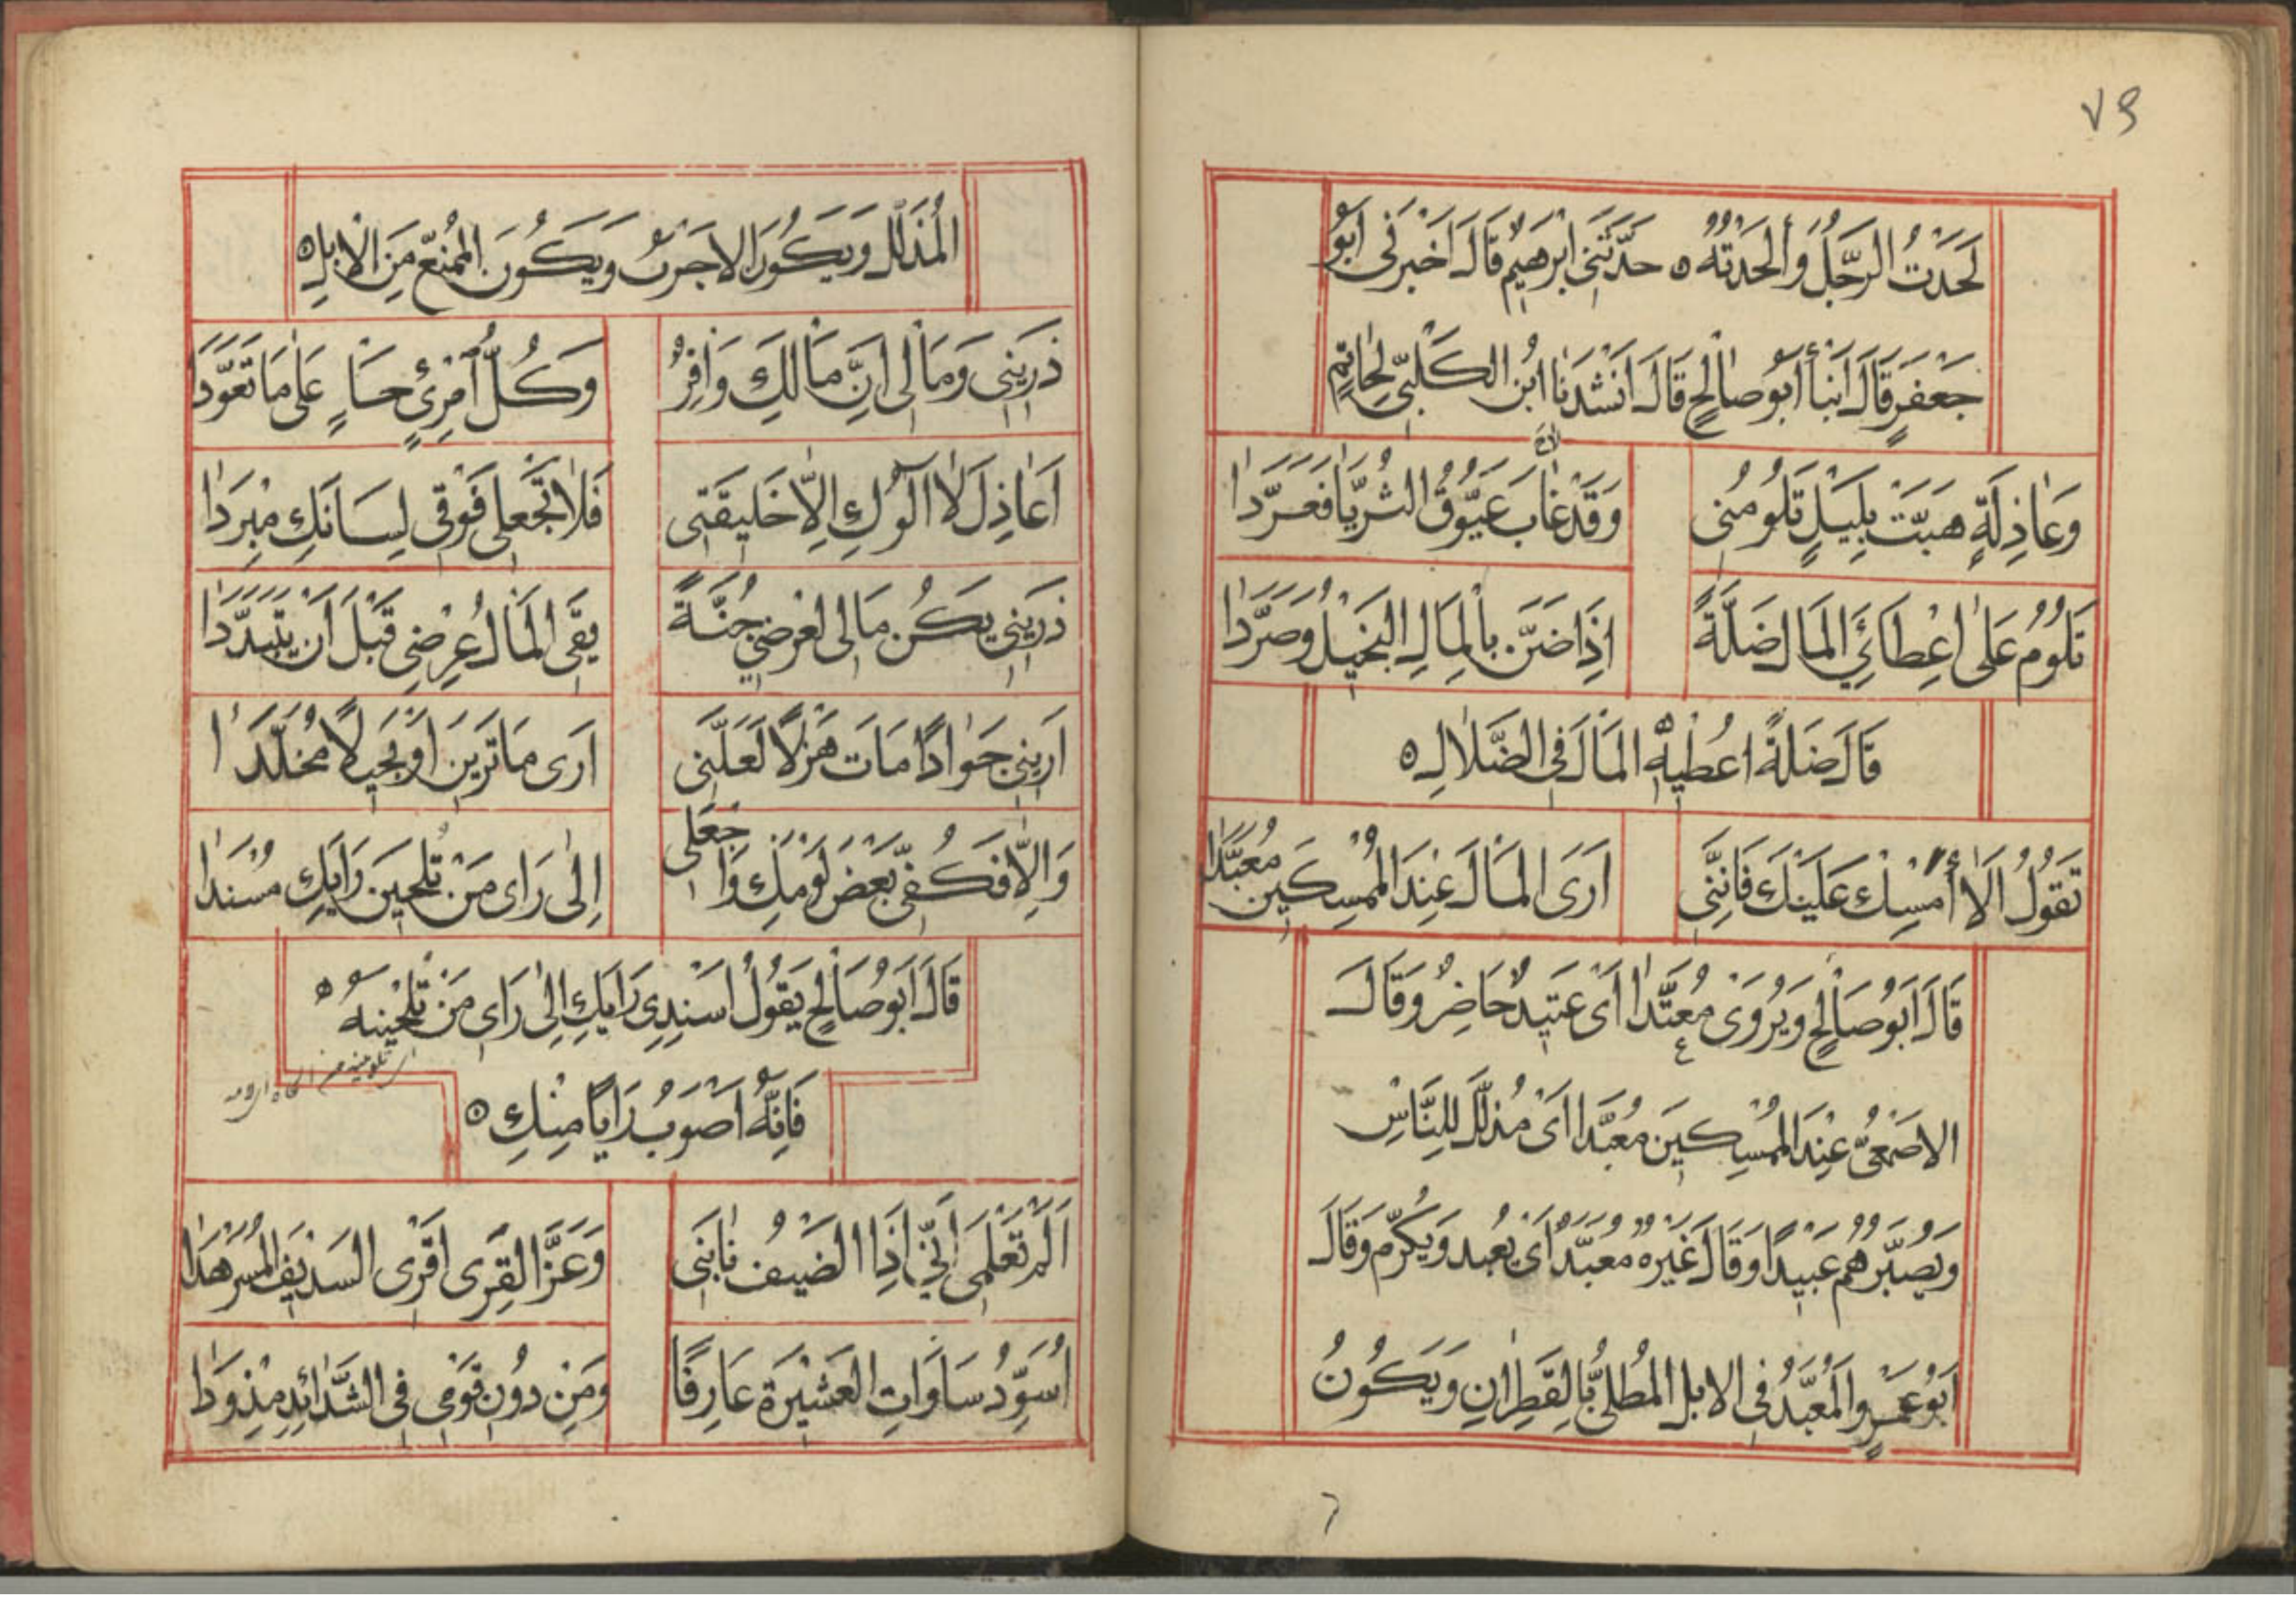 ٧٩
لَحَدْتُ الرَّجُلَ وَأَلْحَدْتُهُ ه حَدَّثَنِي ابْرَهِيمُ قَالَ اَخْبَرَنِى اَبُو
جَعْفَرٍ قَالَ اَنْبَأَ اَبُو صَالِحٍ قَالَ اَنْشَدَنَا ابْنُ الكَلْبِىِّ لِحَاتِمٍ
وَعَاذِلَةٍ هَبَّتْ بِلَيْلٍ تَلُومُنِى وَقَدْ غَابَ عَيُّوقُ الثُّرَيَّا فَعَرَّدَا
تَلُومُ عَلَى اِعْطَائِيَ المَالَ ضَلَّةً اِذَا ضَنَّ بِالْمَالِ البَخِيلُ وَصَرَّدَا
قَالَ ضَلَّةً اُعْطِيْهِ المَالَ فِى الضَّلَالِ ه
تَقُولُ اَلَا أَمْسِكْ عَلَيْكَ فَاِنَّنِى اَرَى المَالَ عِنْدَ المُمْسِكِينَ مُعَبَّدَا
قَالَ اَبُو صَالِحٍ وَيُرْوَى مُعَتَّدًا اَىْ عَتِيدٌ حَاضِرٌ وَقَالَ
الاصْمَعِىُّ عِنْدَ المُمْسِكِينَ مُعَبَّدًا اَىْ مُذَلَّلَ لِلنَّاسِ
وَيُصَيِّرُهُمْ عَبِيْدًا وَقَالَ غَيْرُهُ مُعَبَّدًا اَىْ يُعْبَد وَيُكَرَّم وَقَالَ
اَبُو عَمْرٍو المُعَبَّدُ فِى الابل المُطَلَّى بِالقَطِرَانِ وَيَكُونُ
المُذَلَّلُ وَيَكُونُ الاَجْرَبُ وَيَكُونُ المُمَنَّعَ مِنَ الْاِبِلِ ه
ذَرِينِى وَمَالِى اِنَّ مَالَكِ وَافِرٌ وَكُلُّ امْرِئٍ جَارٍ عَلَى مَا تَعَوَّدَا
اَعَاذِلَ لَا آلُوكِ اِلَّا خَلِيقَتِى فَلَا تَجْعَلِى فَوْقِى لِسَانَكِ مِبْرَدَا
ذَرِينِى يَكُنْ مَالِى لِعِرْضِىَ جُنَّةً يَقِى المَالُ عِرْضِى قَبْلَ اَنْ يَتَبَدَّدَا
اَرِينِى جَوَادًا مَاتَ هَزْلًا لَعَلَّنِى اَرَى مَا تَرَيْنَ اَوْ بَخِيلًا مُخَلَّدَا
وَاِلَّا فَكُفِّى بَعْضَ لَوْمِكِ وَاجْعَلِى اِلَى رَاىِ مَنْ تَلْحَيْنَ رَايَكِ مُسْنَدَا
قَالَ اَبُو صَالِحٍ يَقُولُ اَسْنِدِى رَايَكِ اِلَى رَاىِ مَنْ تَلْحَيْنَهُ ه
فَاِنَّهُ اَصْوَبُ رَايًا مِنْكِ ه
اَلَمْ تَعْلَمِى اَنِّى اِذَا الضَّيْفُ نَابَنِى وَعَزَّ القِرَى اَقْرِى السَّدِيفَ المُسَرْهَدَا
اُسَوَّدُ سَادَاتِ العَشِيْرَةِ عَارِفًا وَمِنْ دُونِ قَوْمِى فِى الشَّدَائِدِ مِذْوَدَا